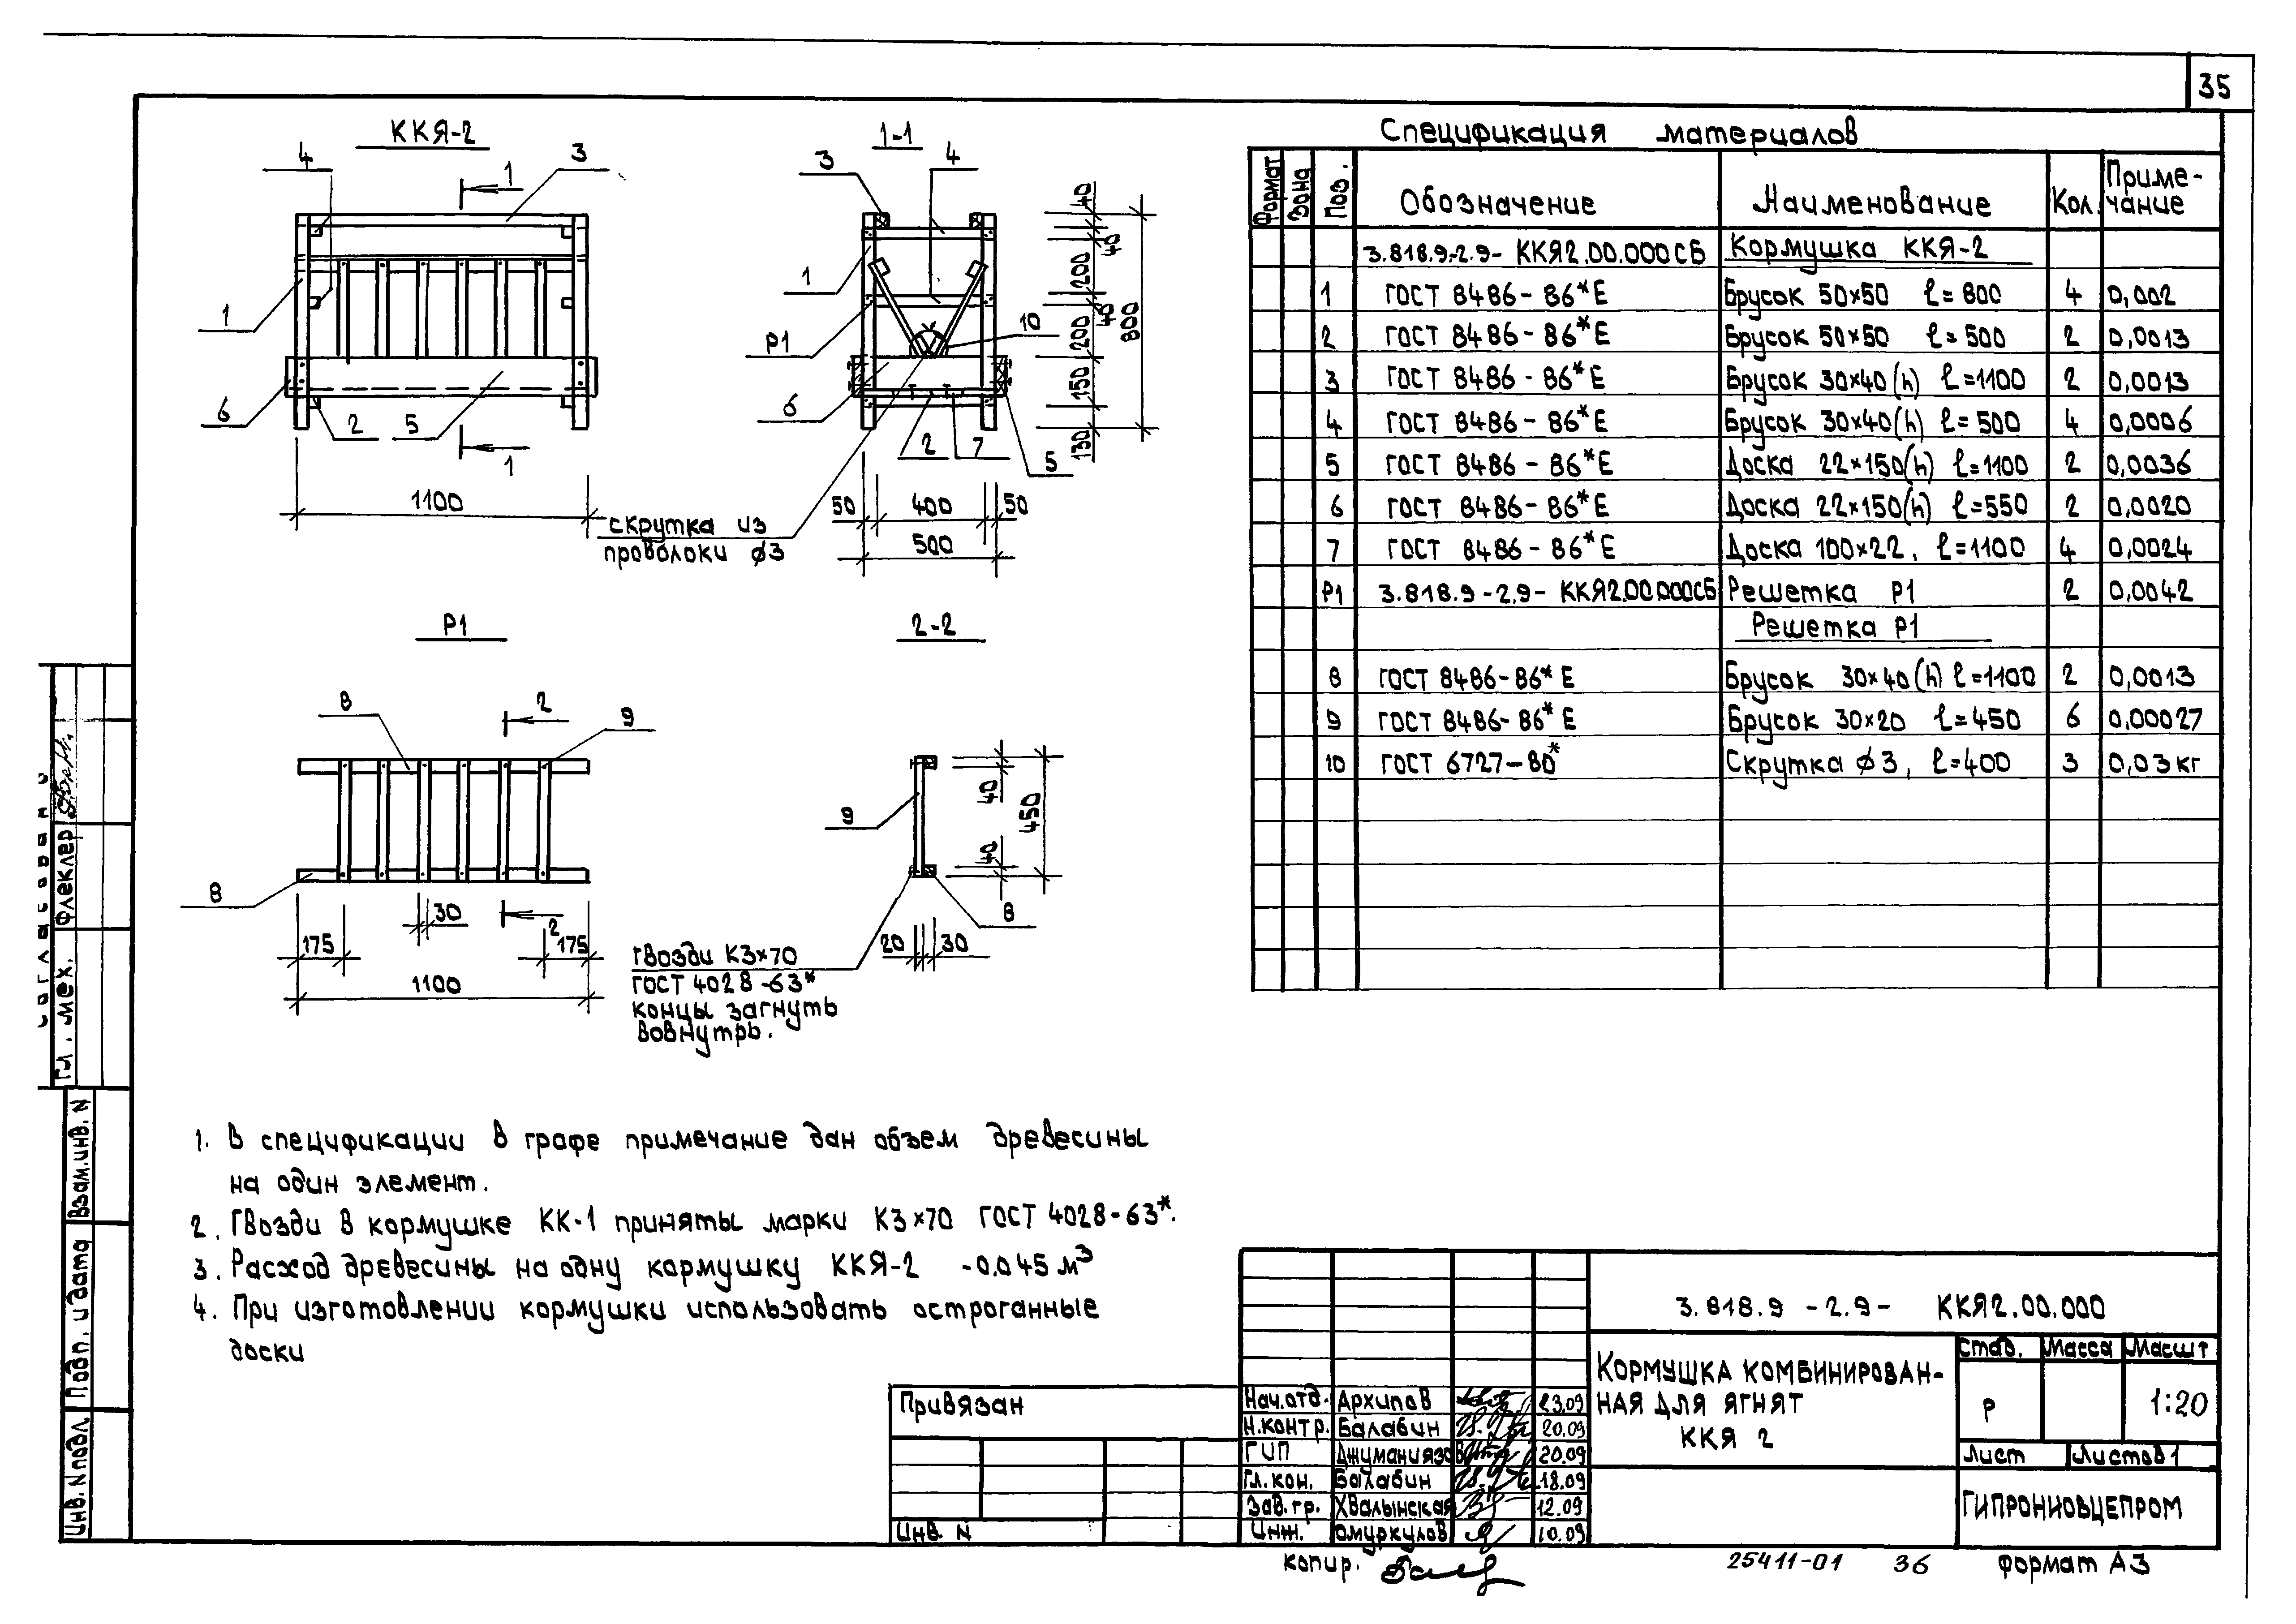 35
ККЯ-2
1-1
4
3
1
1
6
2
5
1
1100
3
4
1
Р1
6
10
2
7
5
40
40
200
40
200
150
130
800
50
400
50
500
скрутка из
проволоки ϕ3
Р1
2-2
8
2
9
8
30
2
175
175
1100
9
8
40
40
450
20
30
гвозди К3×70
ГОСТ 4028-63*
концы загнуть
вовнутрь.
Спецификация материалов
Формат Зона Поз. Обозначение Наименование Кол. Приме-
чание
3.818.9-2.9- ККЯ2.00.000СБ Кормушка ККЯ-2
1 ГОСТ 8486-86*Е Брусок 50×50 ℓ=800 4 0,002
2 ГОСТ 8486-86*Е Брусок 50×50 ℓ=500 2 0,0013
3 ГОСТ 8486-86*Е Брусок 30×40(h) ℓ=1100 2 0,0013
4 ГОСТ 8486-86*Е Брусок 30×40(h) ℓ=500 4 0,0006
5 ГОСТ 8486-86*Е Доска 22×150(h) ℓ=1100 2 0,0036
6 ГОСТ 8486-86*Е Доска 22×150(h) ℓ=550 2 0,0020
7 ГОСТ 8486-86*Е Доска 100×22, ℓ=1100 4 0,0024
Р1 3.818.9-2.9- ККЯ2.00.000СБ Решетка Р1 2 0,0042
Решетка Р1
8 ГОСТ 8486-86*Е Брусок 30×40(h) ℓ=1100 2 0,0013
9 ГОСТ 8486-86*Е Брусок 30×20 ℓ=450 6 0,00027
10 ГОСТ 6727-80* Скрутка ϕ3, ℓ=400 3 0,03кг
1. В спецификации в графе примечание дан объем древесины
на один элемент.
2. Гвозди в кормушке КК-1 приняты марки К3×70 ГОСТ 4028-63*.
3. Расход древесины на одну кормушку ККЯ-2 -0.045 м³
4. При изготовлении кормушки использовать остроганные
доски
Согласовано
Гл. мех. Флеклер
Взам.инв. N
Подп. и дата
Инв. N подл.
Привязан
Инв. N
Нач.отд. Архипов 23.09
Н.контр. Балабин 20.09
ГИП Джуманиязов 20.09
Гл. кон. Балабин 18.09
Зав. гр. Хвалынская 12.09
Инж. Омуркулов 10.09
3.818.9 -2.9- ККЯ2.00.000
Кормушка комбинирован-
ная для ягнят
ККЯ 2
Стад. Масса Масшт
Р 1:20
Лист Листов 1
Гипрониовцепром
копир.
25411-01 36 формат А3